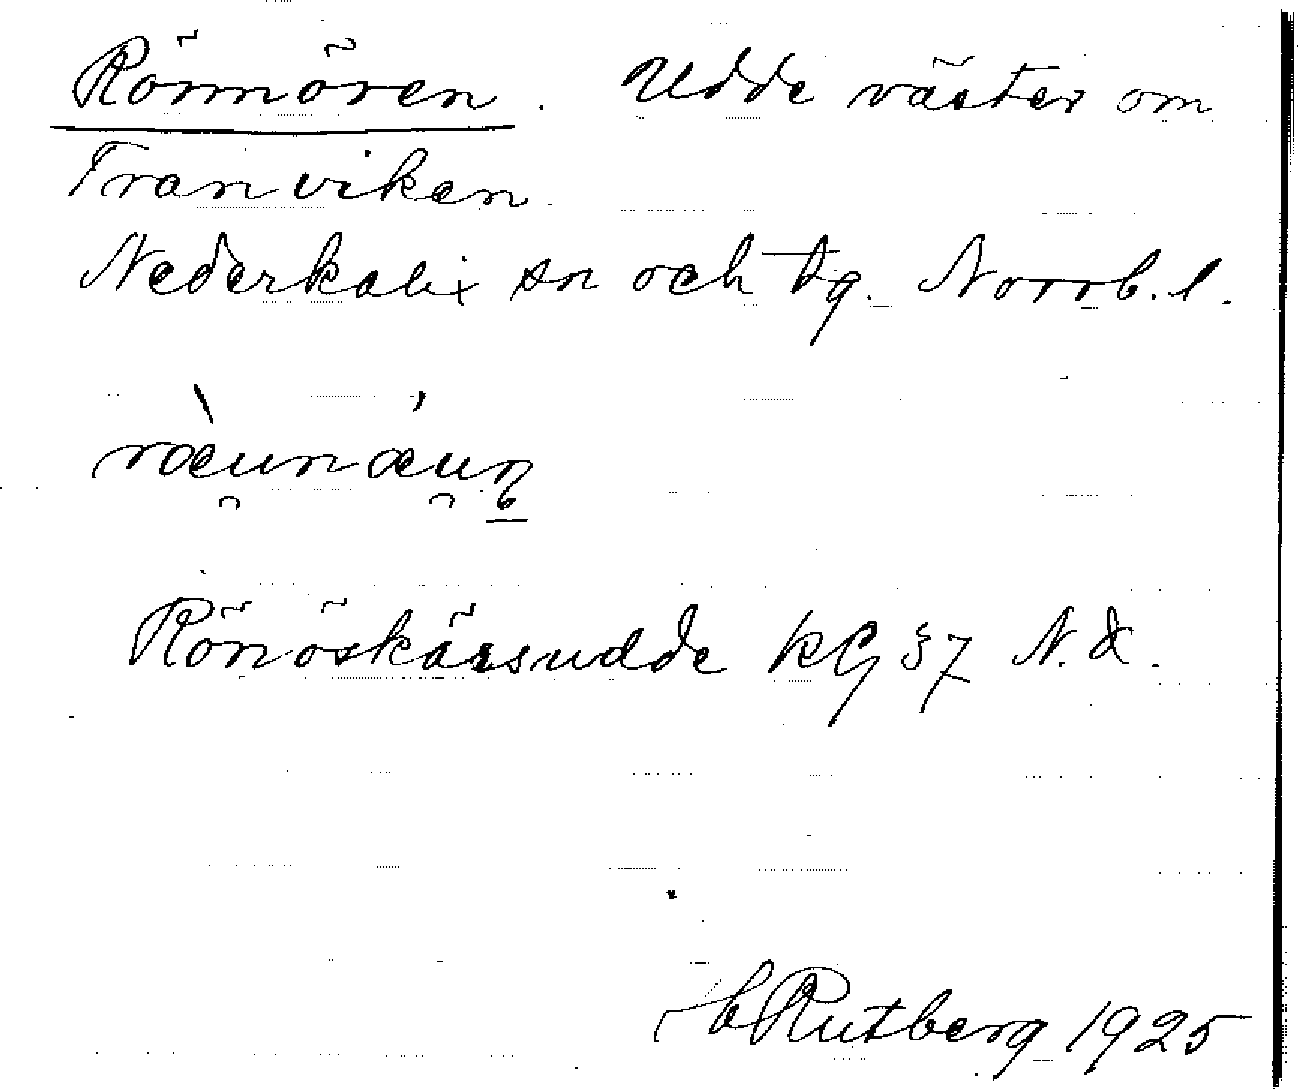 Rönnören. Udde väster om
Tranviken.
Nederkalix sn och tg. Norrb. l.
ræ̀u̯nǽu̯n̥
Rönöskärsudde KG 37 N.X.
H Rutberg 1925